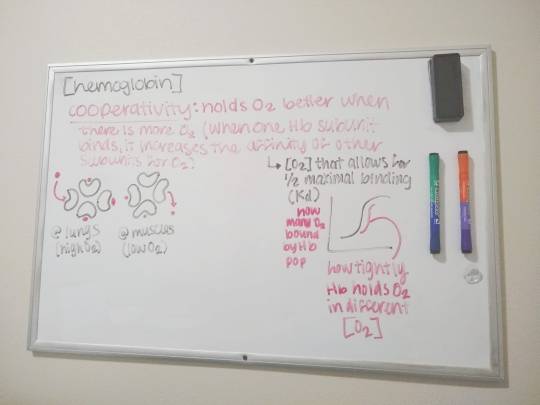 [hemoglobin]
cooperativity: holds O2 better when
there is more O2 (when one Hb subunit
binds, it increases the affinity of other
subunits for O2)
@ lungs
(high O2)
@ muscles
(low O2)
↳ [O2] that allows for
1/2 maximal binding
(Kd)
how
many O2
bound
by Hb
pop
how tightly
Hb holds O2
in different
[O2]